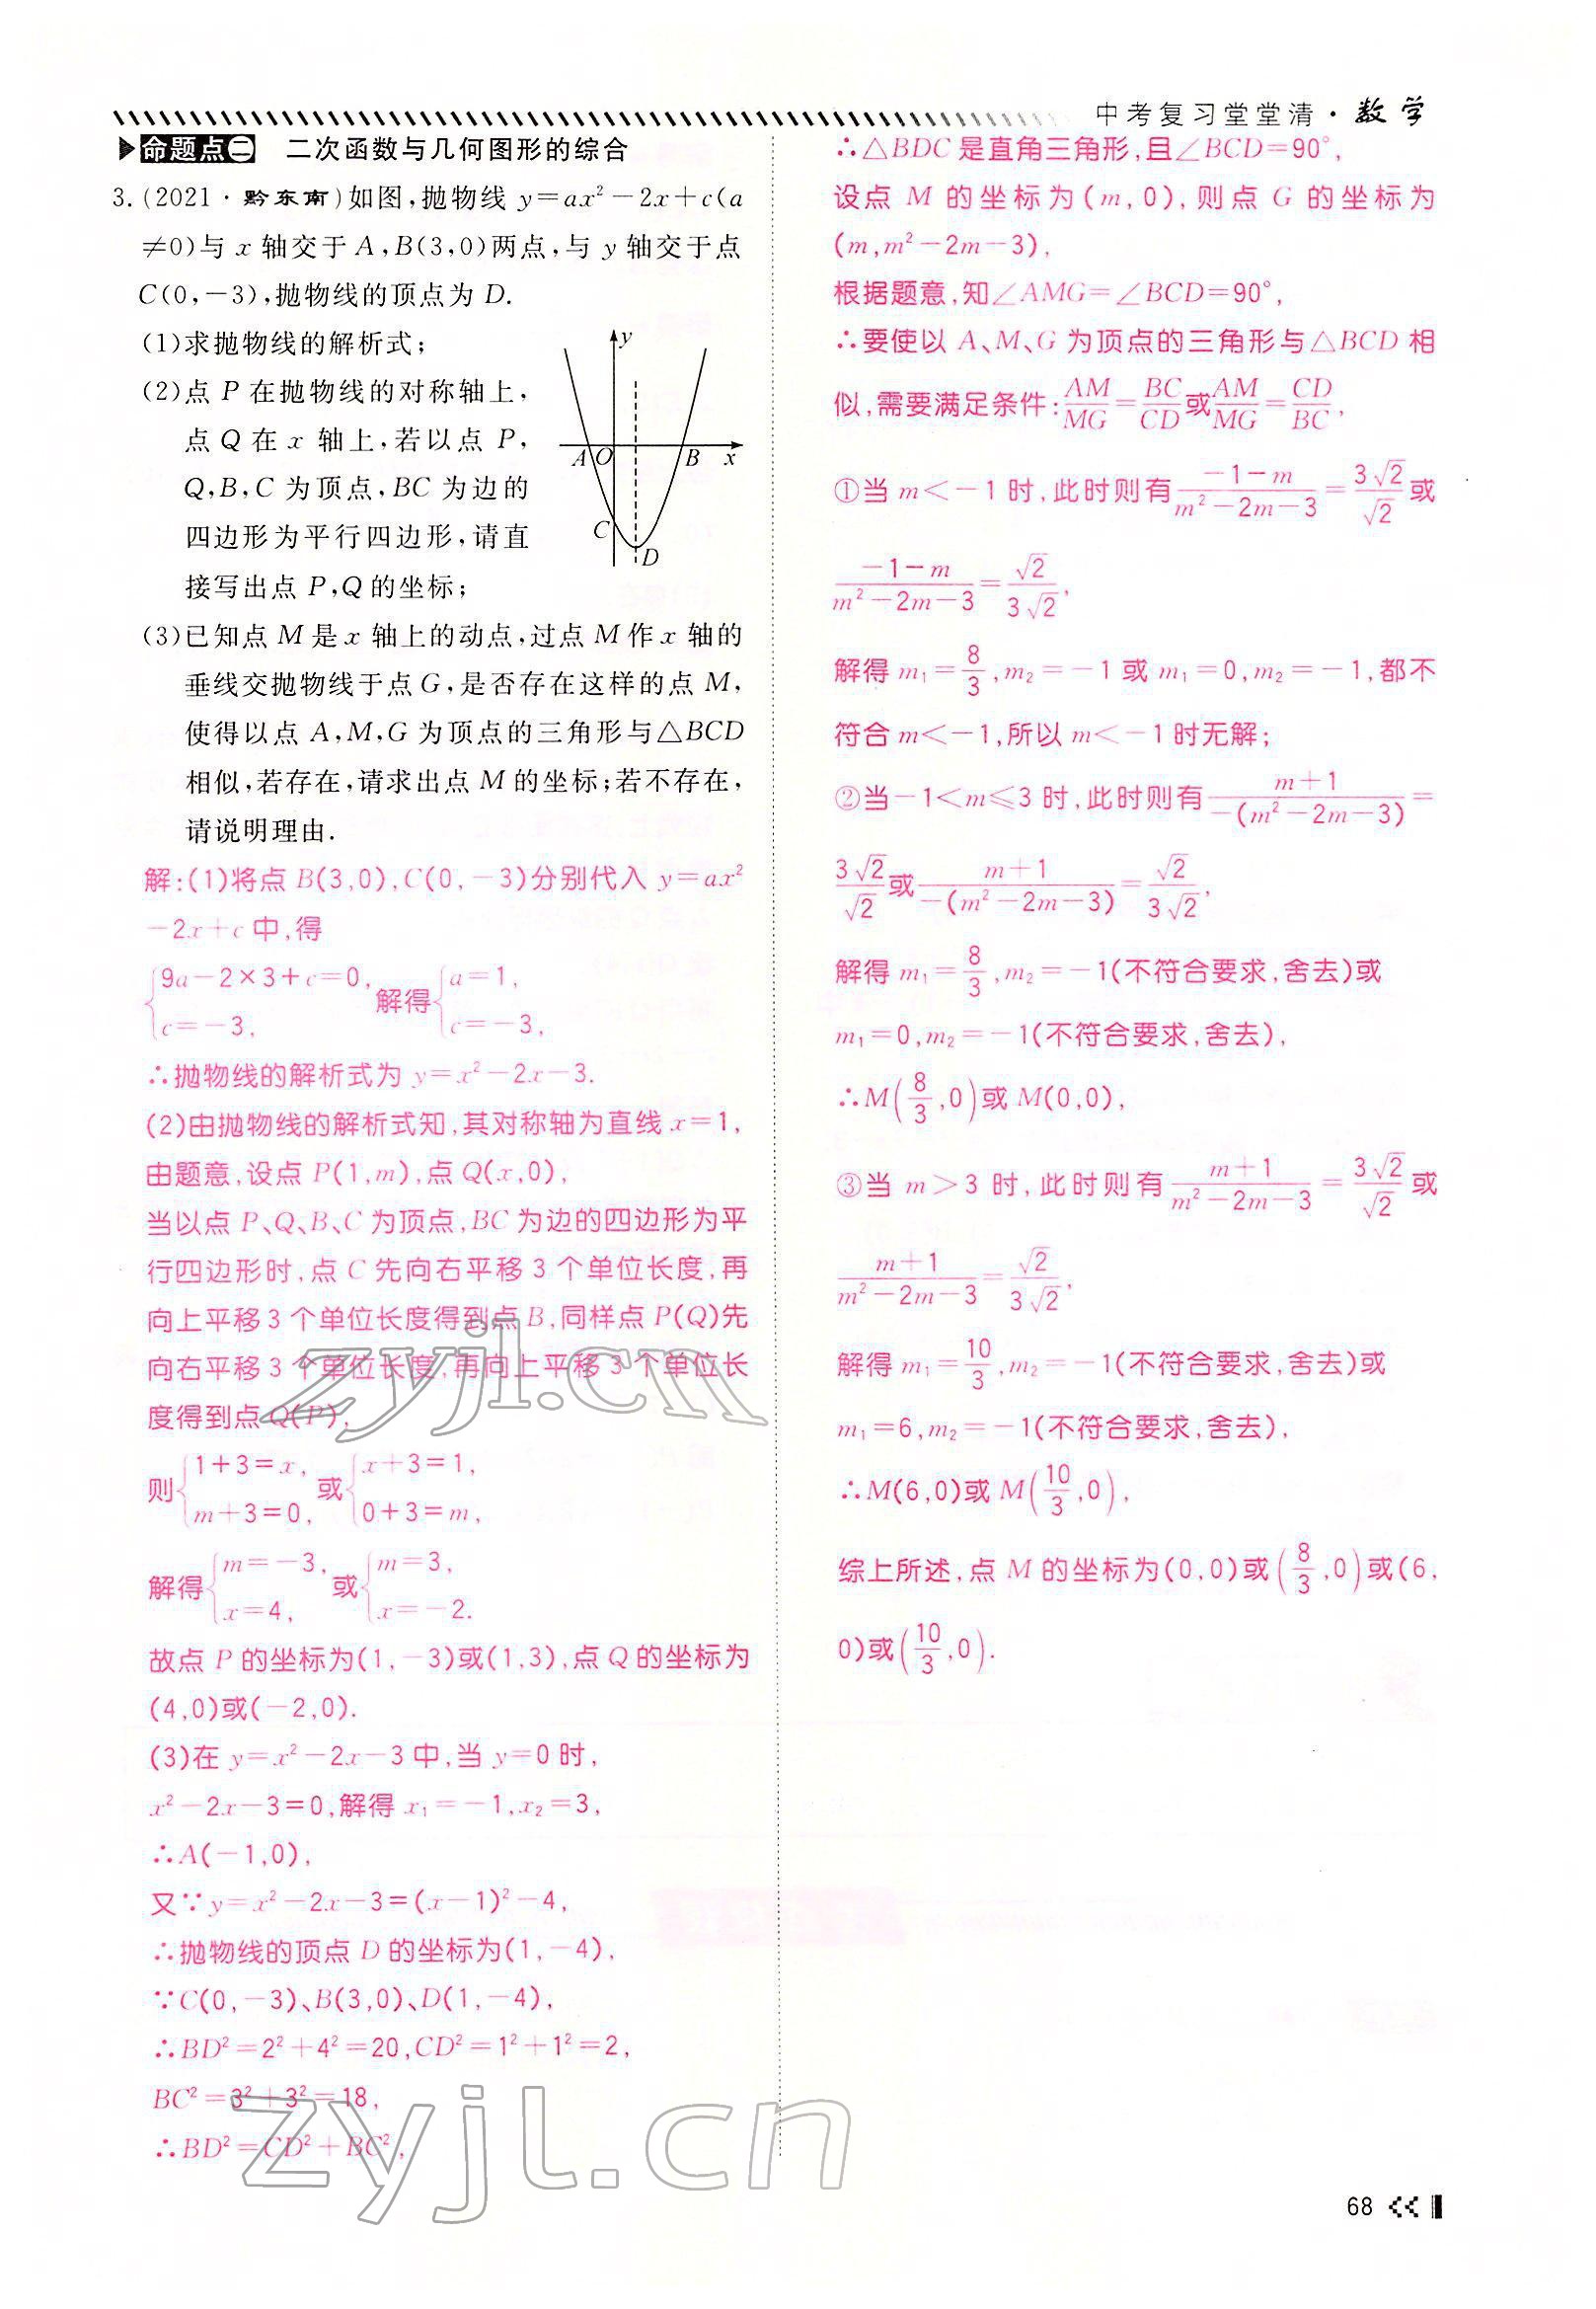 中考复习堂堂清·数学
命题点二 二次函数与几何图形的综合
3.(2021·黔东南)如图,抛物线 y=ax²-2x+c(a
≠0)与 x 轴交于 A,B(3,0)两点,与 y 轴交于点
C(0,-3),抛物线的顶点为 D.
(1)求抛物线的解析式;
(2)点 P 在抛物线的对称轴上,
点 Q 在 x 轴上,若以点 P,
Q,B,C 为顶点,BC 为边的
四边形为平行四边形,请直
接写出点 P,Q 的坐标;
y
A O B x
C
D
(3)已知点 M 是 x 轴上的动点,过点 M 作 x 轴的
垂线交抛物线于点 G,是否存在这样的点 M,
使得以点 A,M,G 为顶点的三角形与△BCD
相似,若存在,请求出点 M 的坐标;若不存在,
请说明理由.
解:(1)将点 B(3,0),C(0,-3)分别代入 y=ax²
-2x+c 中,得
{9a-2×3+c=0, c=-3, 解得{a=1, c=-3,
∴抛物线的解析式为 y=x²-2x-3.
(2)由抛物线的解析式知,其对称轴为直线 x=1,
由题意,设点 P(1,m),点 Q(x,0),
当以点 P、Q、B、C 为顶点,BC 为边的四边形为平
行四边形时,点 C 先向右平移 3 个单位长度,再
向上平移 3 个单位长度得到点 B,同样点 P(Q)先
向右平移 3 个单位长度,再向上平移 3 个单位长
度得到点 Q(P),
则{1+3=x, m+3=0, 或{x+3=1, 0+3=m,
解得{m=-3, x=4, 或{m=3, x=-2.
故点 P 的坐标为(1,-3)或(1,3),点 Q 的坐标为
(4,0)或(-2,0).
(3)在 y=x²-2x-3 中,当 y=0 时,
x²-2x-3=0,解得 x₁=-1,x₂=3,
∴A(-1,0),
又∵y=x²-2x-3=(x-1)²-4,
∴抛物线的顶点 D 的坐标为(1,-4),
∵C(0,-3)、B(3,0)、D(1,-4),
∴BD²=2²+4²=20,CD²=1²+1²=2,
BC²=3²+3²=18,
∴BD²=CD²+BC²,
∴△BDC 是直角三角形,且∠BCD=90°,
设点 M 的坐标为(m,0),则点 G 的坐标为
(m,m²-2m-3),
根据题意,知∠AMG=∠BCD=90°,
∴要使以 A、M、G 为顶点的三角形与△BCD 相
似,需要满足条件:AM/MG=BC/CD或AM/MG=CD/BC,
①当 m<-1 时,此时则有(-1-m)/(m²-2m-3)=3√2/√2或
(-1-m)/(m²-2m-3)=√2/3√2,
解得 m₁=8/3,m₂=-1 或 m₁=0,m₂=-1,都不
符合 m<-1,所以 m<-1 时无解;
②当-1<m≤3 时,此时则有(m+1)/-(m²-2m-3)=
3√2/√2或(m+1)/-(m²-2m-3)=√2/3√2,
解得 m₁=8/3,m₂=-1(不符合要求,舍去)或
m₁=0,m₂=-1(不符合要求,舍去),
∴M(8/3,0)或 M(0,0),
③当 m>3 时,此时则有(m+1)/(m²-2m-3)=3√2/√2或
(m+1)/(m²-2m-3)=√2/3√2,
解得 m₁=10/3,m₂=-1(不符合要求,舍去)或
m₁=6,m₂=-1(不符合要求,舍去),
∴M(6,0)或 M(10/3,0),
综上所述,点 M 的坐标为(0,0)或(8/3,0)或(6,
0)或(10/3,0).
zyjl.cn
zyjl.cn
68